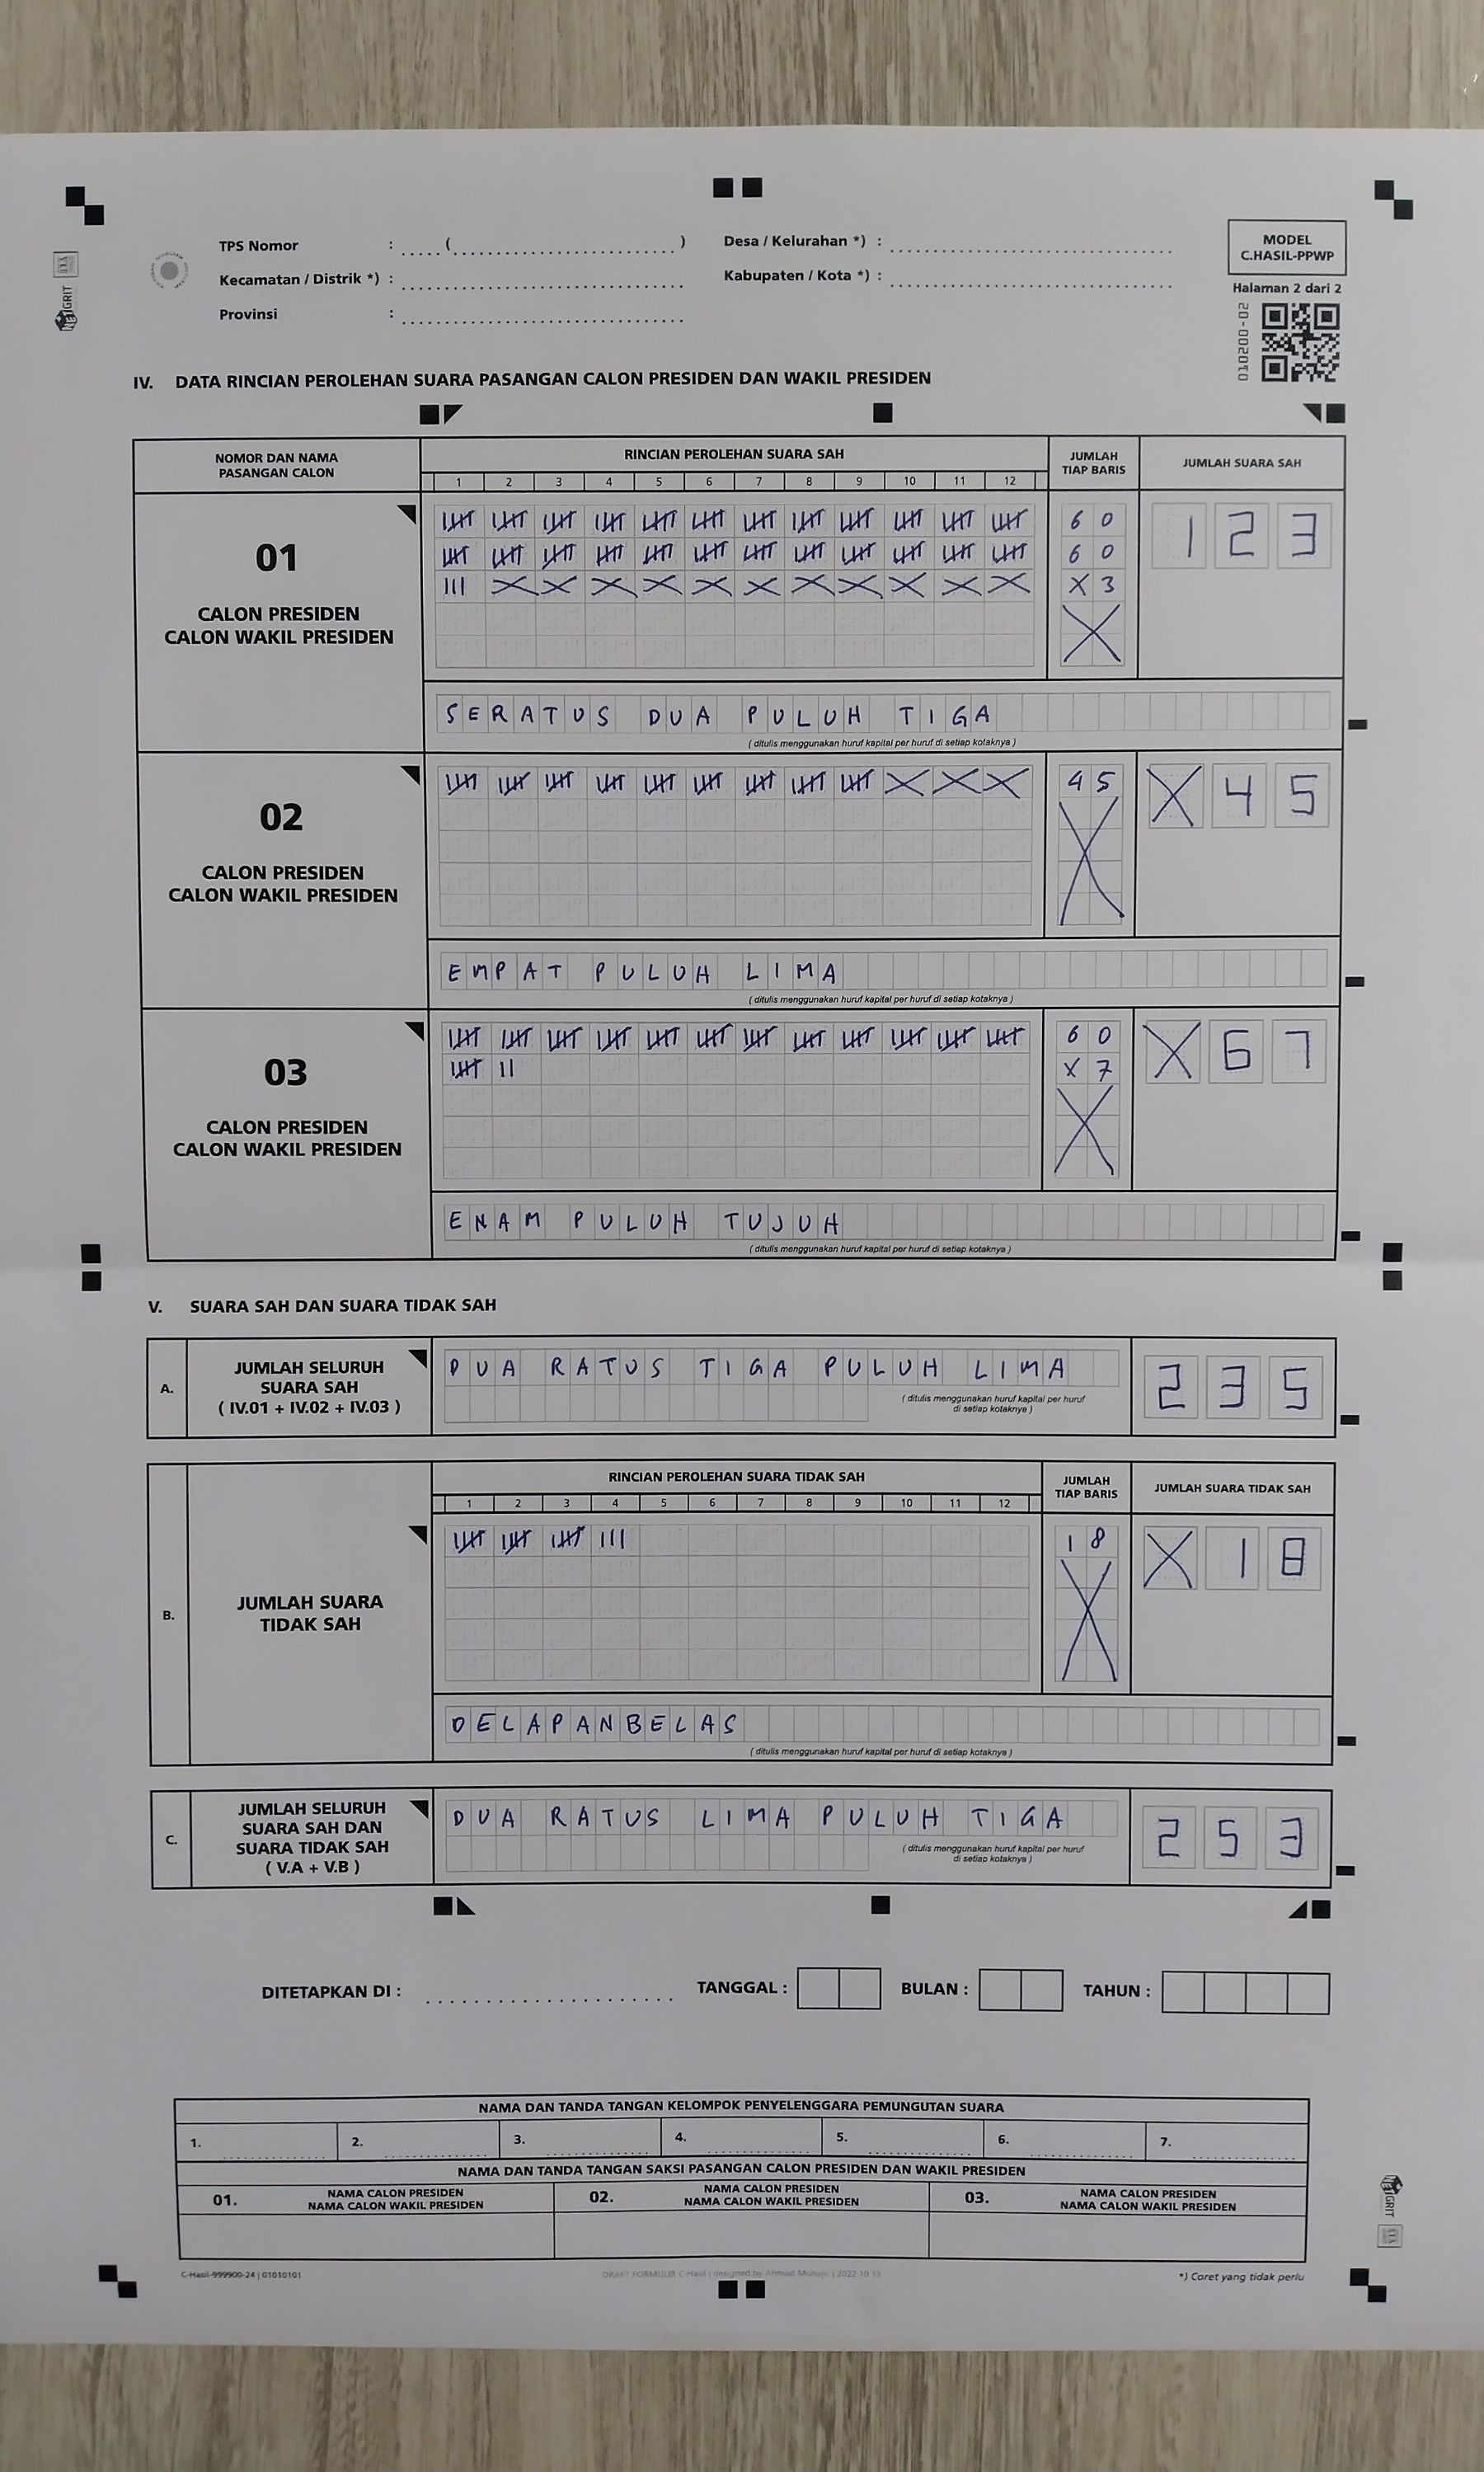 TPS Nomor : ..... ( .............................. ) Desa / Kelurahan *) : ........................................
MODEL
C.HASIL-PPWP
Kecamatan / Distrik *) : ........................................ Kabupaten / Kota *) : ........................................
Halaman 2 dari 2
Provinsi : ........................................
010200-02
IV. DATA RINCIAN PEROLEHAN SUARA PASANGAN CALON PRESIDEN DAN WAKIL PRESIDEN
NOMOR DAN NAMA
PASANGAN CALON
RINCIAN PEROLEHAN SUARA SAH
JUMLAH
TIAP BARIS
JUMLAH SUARA SAH
1 2 3 4 5 6 7 8 9 10 11 12
01
CALON PRESIDEN
CALON WAKIL PRESIDEN
60
60
X3
X
123
SERATUS DUA PULUH TIGA
( ditulis menggunakan huruf kapital per huruf di setiap kotaknya )
02
CALON PRESIDEN
CALON WAKIL PRESIDEN
45
X
X45
EMPAT PULUH LIMA
( ditulis menggunakan huruf kapital per huruf di setiap kotaknya )
03
CALON PRESIDEN
CALON WAKIL PRESIDEN
60
X7
X
X67
ENAM PULUH TUJUH
( ditulis menggunakan huruf kapital per huruf di setiap kotaknya )
V. SUARA SAH DAN SUARA TIDAK SAH
A.
JUMLAH SELURUH
SUARA SAH
( IV.01 + IV.02 + IV.03 )
DUA RATUS TIGA PULUH LIMA
( ditulis menggunakan huruf kapital per huruf
di setiap kotaknya )
235
B.
JUMLAH SUARA
TIDAK SAH
RINCIAN PEROLEHAN SUARA TIDAK SAH
JUMLAH
TIAP BARIS
JUMLAH SUARA TIDAK SAH
1 2 3 4 5 6 7 8 9 10 11 12
18
X
X18
DELAPANBELAS
( ditulis menggunakan huruf kapital per huruf di setiap kotaknya )
C.
JUMLAH SELURUH
SUARA SAH DAN
SUARA TIDAK SAH
( V.A + V.B )
DUA RATUS LIMA PULUH TIGA
( ditulis menggunakan huruf kapital per huruf
di setiap kotaknya )
253
DITETAPKAN DI : ..................... TANGGAL : BULAN : TAHUN :
NAMA DAN TANDA TANGAN KELOMPOK PENYELENGGARA PEMUNGUTAN SUARA
1. 2. 3. 4. 5. 6. 7.
NAMA DAN TANDA TANGAN SAKSI PASANGAN CALON PRESIDEN DAN WAKIL PRESIDEN
01. NAMA CALON PRESIDEN
NAMA CALON WAKIL PRESIDEN
02. NAMA CALON PRESIDEN
NAMA CALON WAKIL PRESIDEN
03. NAMA CALON PRESIDEN
NAMA CALON WAKIL PRESIDEN
C-Hasil-999900-24 | 01010101
DRAFT FORMULIR C-Hasil | designed by Ahmad
*) Coret yang tidak perlu